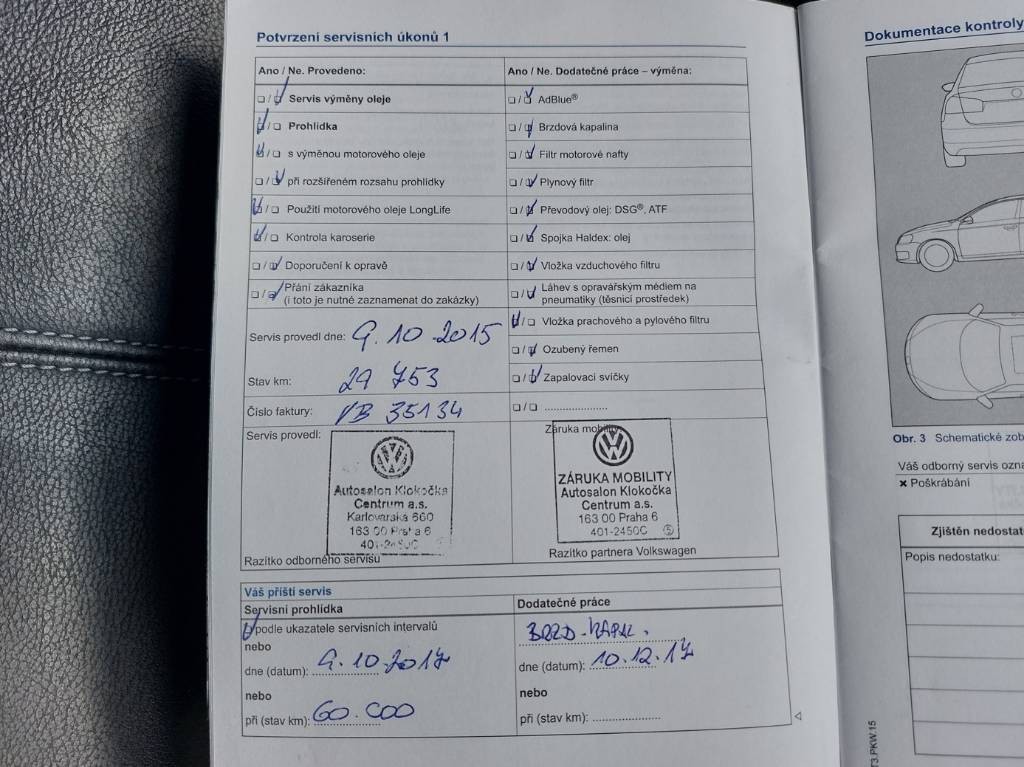 Potvrzení servisních úkonů 1
Ano / Ne. Provedeno:
Servis výměny oleje
Prohlídka
s výměnou motorového oleje
při rozšířeném rozsahu prohlídky
Použití motorového oleje LongLife
Kontrola karoserie
Doporučení k opravě
Přání zákazníka
(i toto je nutné zaznamenat do zakázky)
Servis provedl dne: 9.10.2015
Stav km: 29 753
Číslo faktury: VB 35134
Servis provedl:
Autosalon Klokočka
Centrum a.s.
Karlovarská 660
163 00 Praha 6
401-2450C
Razítko odborného servisu
Ano / Ne. Dodatečné práce – výměna:
AdBlue®
Brzdová kapalina
Filtr motorové nafty
Plynový filtr
Převodový olej: DSG®, ATF
Spojka Haldex: olej
Vložka vzduchového filtru
Láhev s opravářským médiem na
pneumatiky (těsnicí prostředek)
Vložka prachového a pylového filtru
Ozubený řemen
Zapalovací svíčky
....................
Záruka mobility
ZÁRUKA MOBILITY
Autosalon Klokočka
Centrum a.s.
163 00 Praha 6
401-2450C 5
Razítko partnera Volkswagen
Váš příští servis
Servisní prohlídka
podle ukazatele servisních intervalů
nebo
dne (datum): 9.10.2017
nebo
při (stav km): 60.000
Dodatečné práce
BRZD. KAPAL.
dne (datum): 10.12.17
nebo
při (stav km): ....................
Dokumentace kontroly
Obr. 3 Schematické zob
Váš odborný servis ozna
× Poškrábání
Zjištěn nedostat
Popis nedostatku:
T3.PKW.15